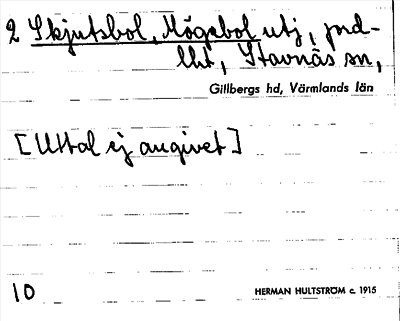 2 Skjutsbol, Högebol utj, jord-
lht, Stavnäs sn,
Gillbergs hd, Värmlands län
[Uttal ej angivet]
10
HERMAN HULTSTRÖM c. 1915